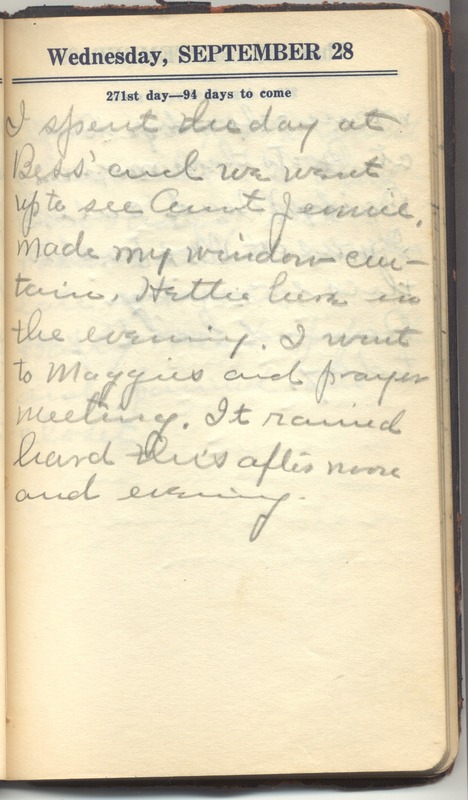 Wednesday, SEPTEMBER 28
271st day—94 days to come
I spent the day at
Bess' and we went
up to see Aunt Jennie.
Made my window cur-
tain. Hettie here in
the evening. I went
to Maggies and prayer
meeting. It rained
hard this after noon
and evening.